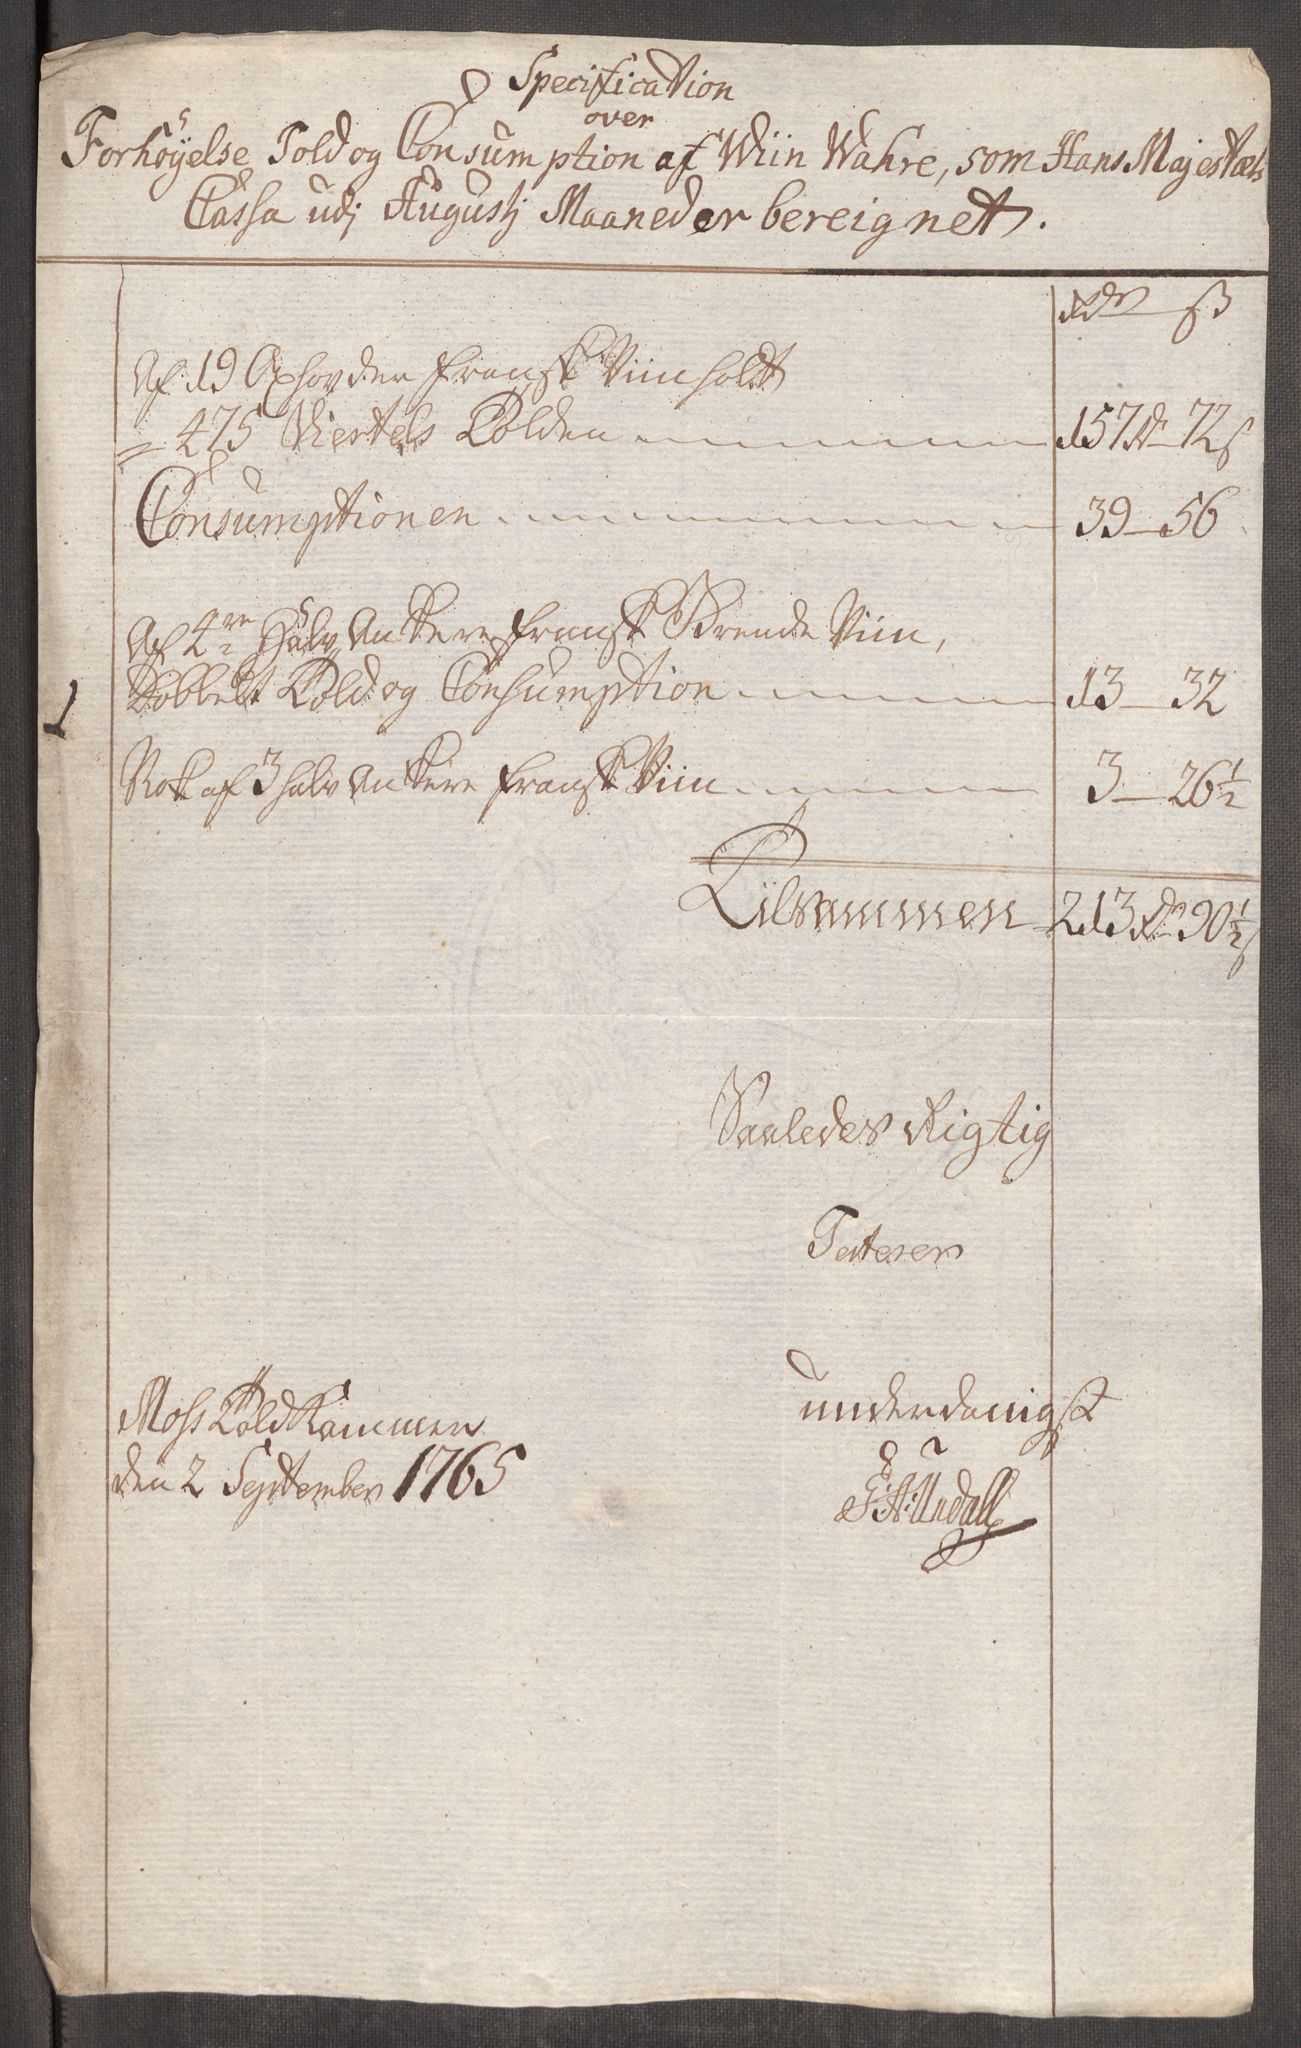 Specification
over
Forhöyelse Told og Consumption af Wiin Wahre, som Hans Majestæts
Cassa udj Augustj Maaned er bereignet.
Rdr ß
Af 19 Oxhovder Fransk Viin holdt
= 475 Viertels Tolden 157 Rd 72 ß
Consumptionen 39 56
Af 4re Halv Ankere Fransk Brende Viin,
Dobbelt Told og Consumption 13 32
Nok af 3 halv Ankere Fransk Viin 3 26½
Tilsammen 213 Rd 90½ ß
Saaledes Rigtig
Testerer
Moss Told Kammer
den 2 September 1765
underdanigst